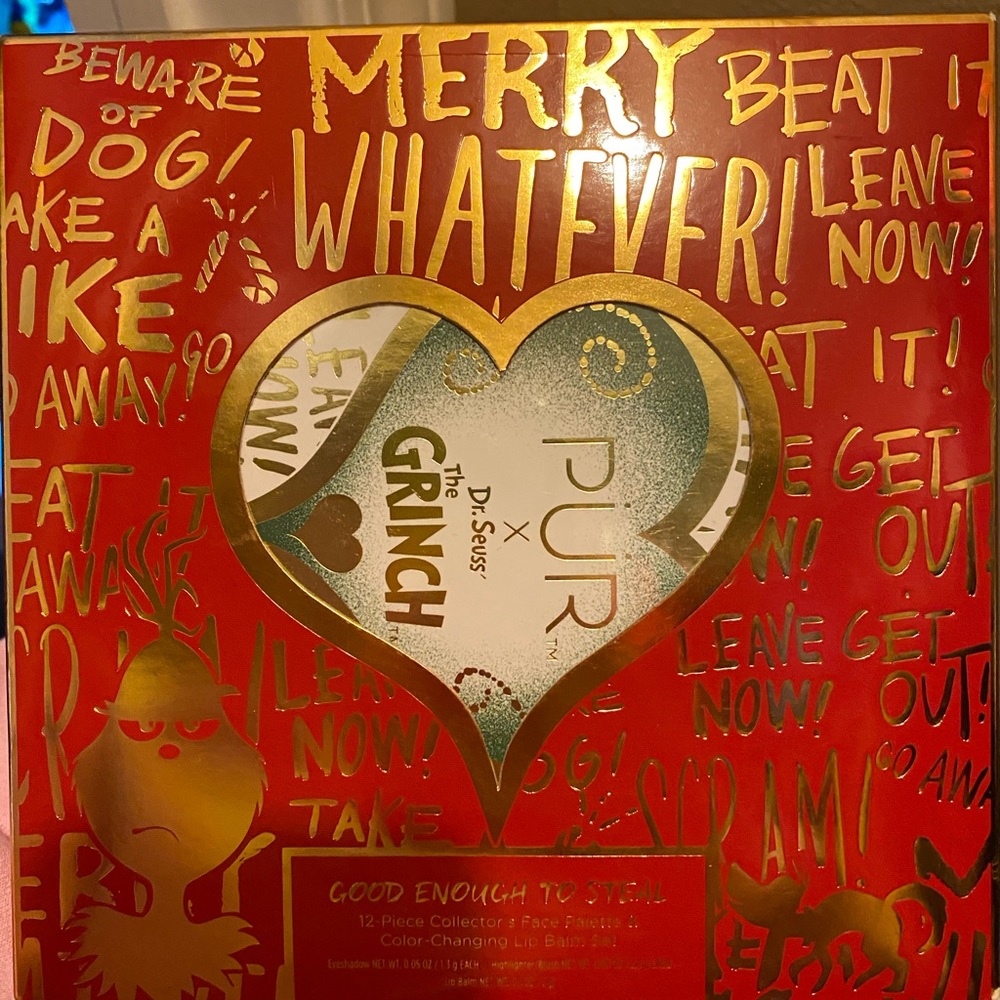 BEWARE
OF
DOG!
MERRY
WHATEVER!
BEAT IT
LEAVE
NOW!
AKE A
IKE
GO
AWAY!
EAT IT!
LEAVE
NOW!
PÜR™
X
Dr. Seuss'
The
GRINCH™
EAT IT
AWAY
GET
OUT
LEAVE
NOW!
GET
OUT!
GO AWA
LEA
NOW!
TAKE
OG!
SCRAM!
GOOD ENOUGH TO STEAL
12-Piece Collector's Face Palette &
Color-Changing Lip Balm Set
Eyeshadow NET WT. 0.05 OZ / 1.3 g EACH
Lip Balm NET WT.